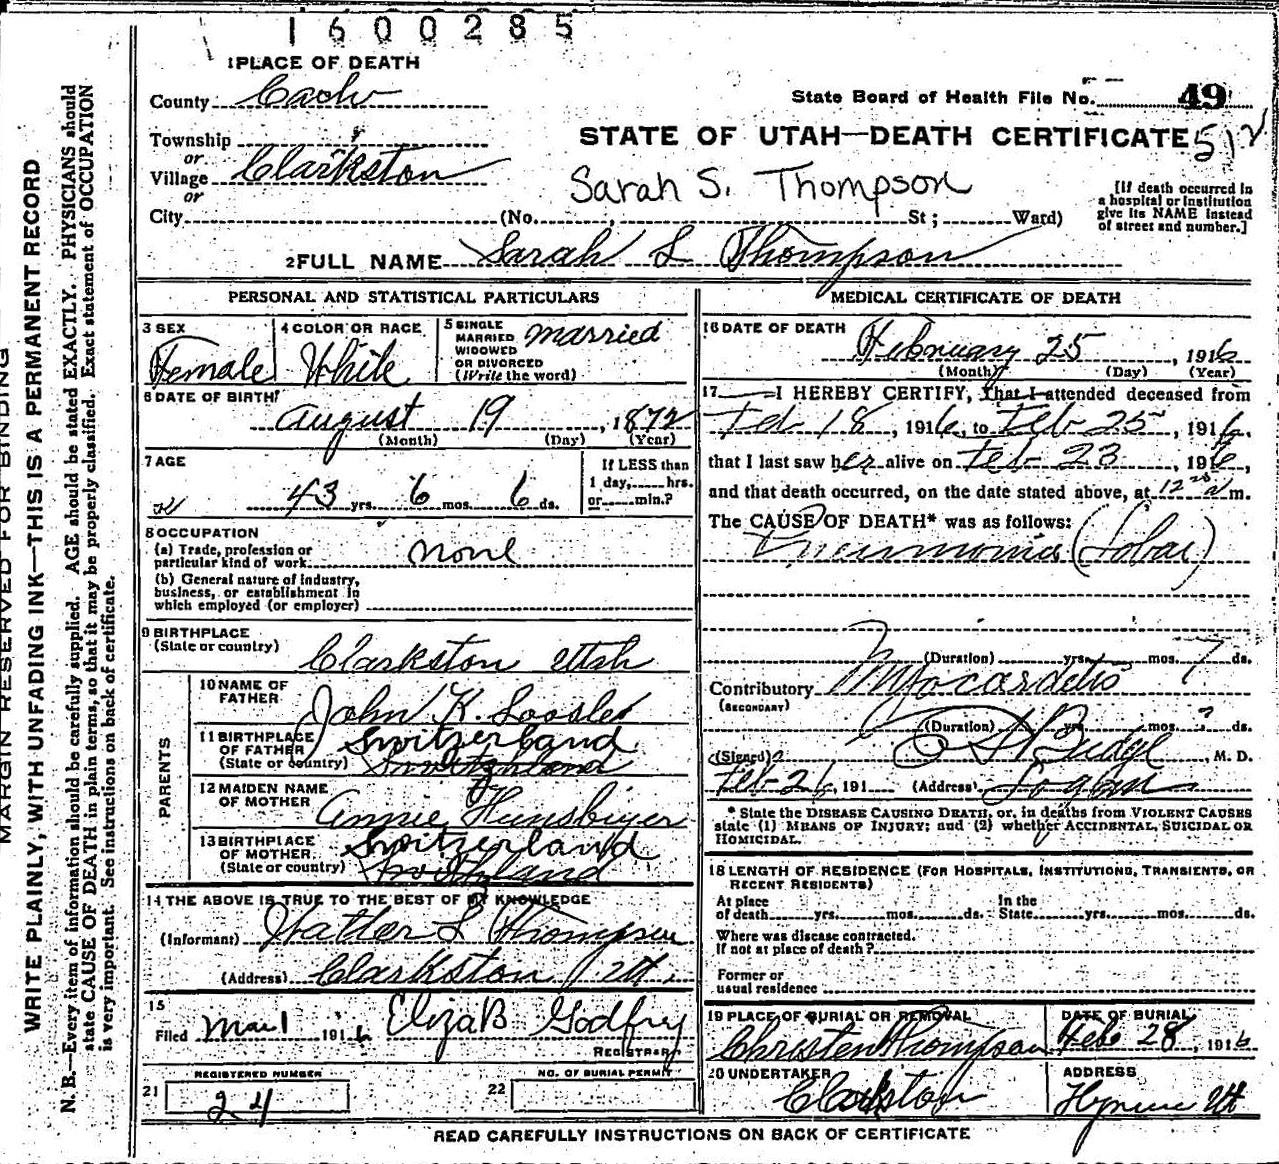 1600285
1 PLACE OF DEATH
County Cache
State Board of Health File No. 49
Township
or
Village Clarkston
or
STATE OF UTAH—DEATH CERTIFICATE 512
Sarah S. Thompson
[If death occurred in
a hospital or institution
give its NAME instead
of street and number.]
City (No. St; Ward)
2 FULL NAME Sarah L Thompson
PERSONAL AND STATISTICAL PARTICULARS
3 SEX
Female
4 COLOR OR RACE
White
5 SINGLE
MARRIED
WIDOWED
OR DIVORCED
(Write the word)
married
6 DATE OF BIRTH
August 19, 1872
(Month) (Day) (Year)
7 AGE
43 yrs. 6 mos. 6 ds.
If LESS than
1 day, hrs.
or min.?
8 OCCUPATION
(a) Trade, profession or
particular kind of work none
(b) General nature of industry,
business, or establishment in
which employed (or employer)
9 BIRTHPLACE
(State or country) Clarkston Utah
PARENTS
10 NAME OF
FATHER John K. Loosle
11 BIRTHPLACE
OF FATHER
(State or country)
Switzerland
12 MAIDEN NAME
OF MOTHER Annie Hunsbiger
13 BIRTHPLACE
OF MOTHER
(State or country)
Switzerland
14 THE ABOVE IS TRUE TO THE BEST OF MY KNOWLEDGE
(Informant) Walter L Thompson
(Address) Clarkston Ut.
15
Filed Mar 1 1916 Eliza B Godfrey
REGISTRAR
REGISTERED NUMBER
21 24
NO. OF BURIAL PERMIT
22
MEDICAL CERTIFICATE OF DEATH
16 DATE OF DEATH
February 25, 1916
(Month) (Day) (Year)
17 I HEREBY CERTIFY, That I attended deceased from
Feb 18, 1916, to Feb 25, 1916,
that I last saw her alive on Feb 23, 1916,
and that death occurred, on the date stated above, at 12 m.
The CAUSE OF DEATH* was as follows:
Pneumonia (Lobar)
(Duration) yrs. mos. 7 ds.
Contributory Myocarditis
(SECONDARY)
(Duration) yrs. mos. ? ds.
(Signed) Budge, M. D.
Feb 26, 191 (Address) Logan
* State the DISEASE CAUSING DEATH, or, in deaths from VIOLENT CAUSES
state (1) MEANS OF INJURY; and (2) whether ACCIDENTAL, SUICIDAL OR
HOMICIDAL.
18 LENGTH OF RESIDENCE (FOR HOSPITALS, INSTITUTIONS, TRANSIENTS, OR
RECENT RESIDENTS)
At place
of death yrs. mos. ds.
In the
State yrs. mos. ds.
Where was disease contracted.
If not at place of death?
Former or
usual residence
19 PLACE OF BURIAL OR REMOVAL
DATE OF BURIAL
Christen Thompson Feb 28, 1916
20 UNDERTAKER
Clarkston
ADDRESS
Hyrum Ut
READ CAREFULLY INSTRUCTIONS ON BACK OF CERTIFICATE
MARGIN RESERVED FOR BINDING
WRITE PLAINLY, WITH UNFADING INK—THIS IS A PERMANENT RECORD
N. B.—Every item of information should be carefully supplied. AGE should be stated EXACTLY. PHYSICIANS should
state CAUSE OF DEATH in plain terms, so that it may be properly classified. Exact statement of OCCUPATION
is very important. See instructions on back of certificate.